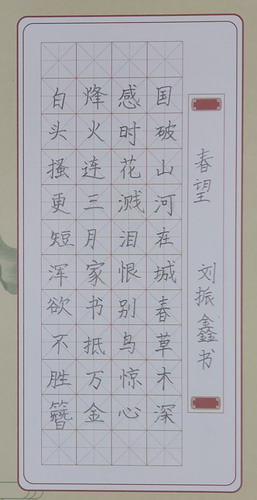 春望 刘振鑫书
国破山河在城春草木深
感时花溅泪恨别鸟惊心
烽火连三月家书抵万金
白头搔更短浑欲不胜簪